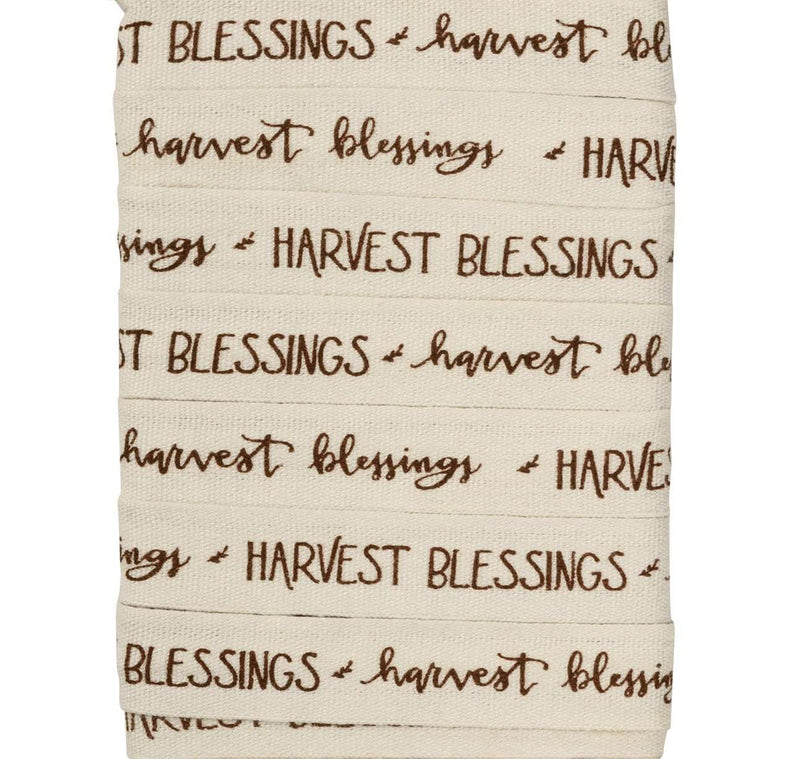 ST BLESSINGS harvest bl
harvest blessings HARV
ssings HARVEST BLESSINGS
ST BLESSINGS harvest ble
harvest blessings HARVES
ings HARVEST BLESSINGS
BLESSINGS harvest blessing
HARVEST BLESSINGS